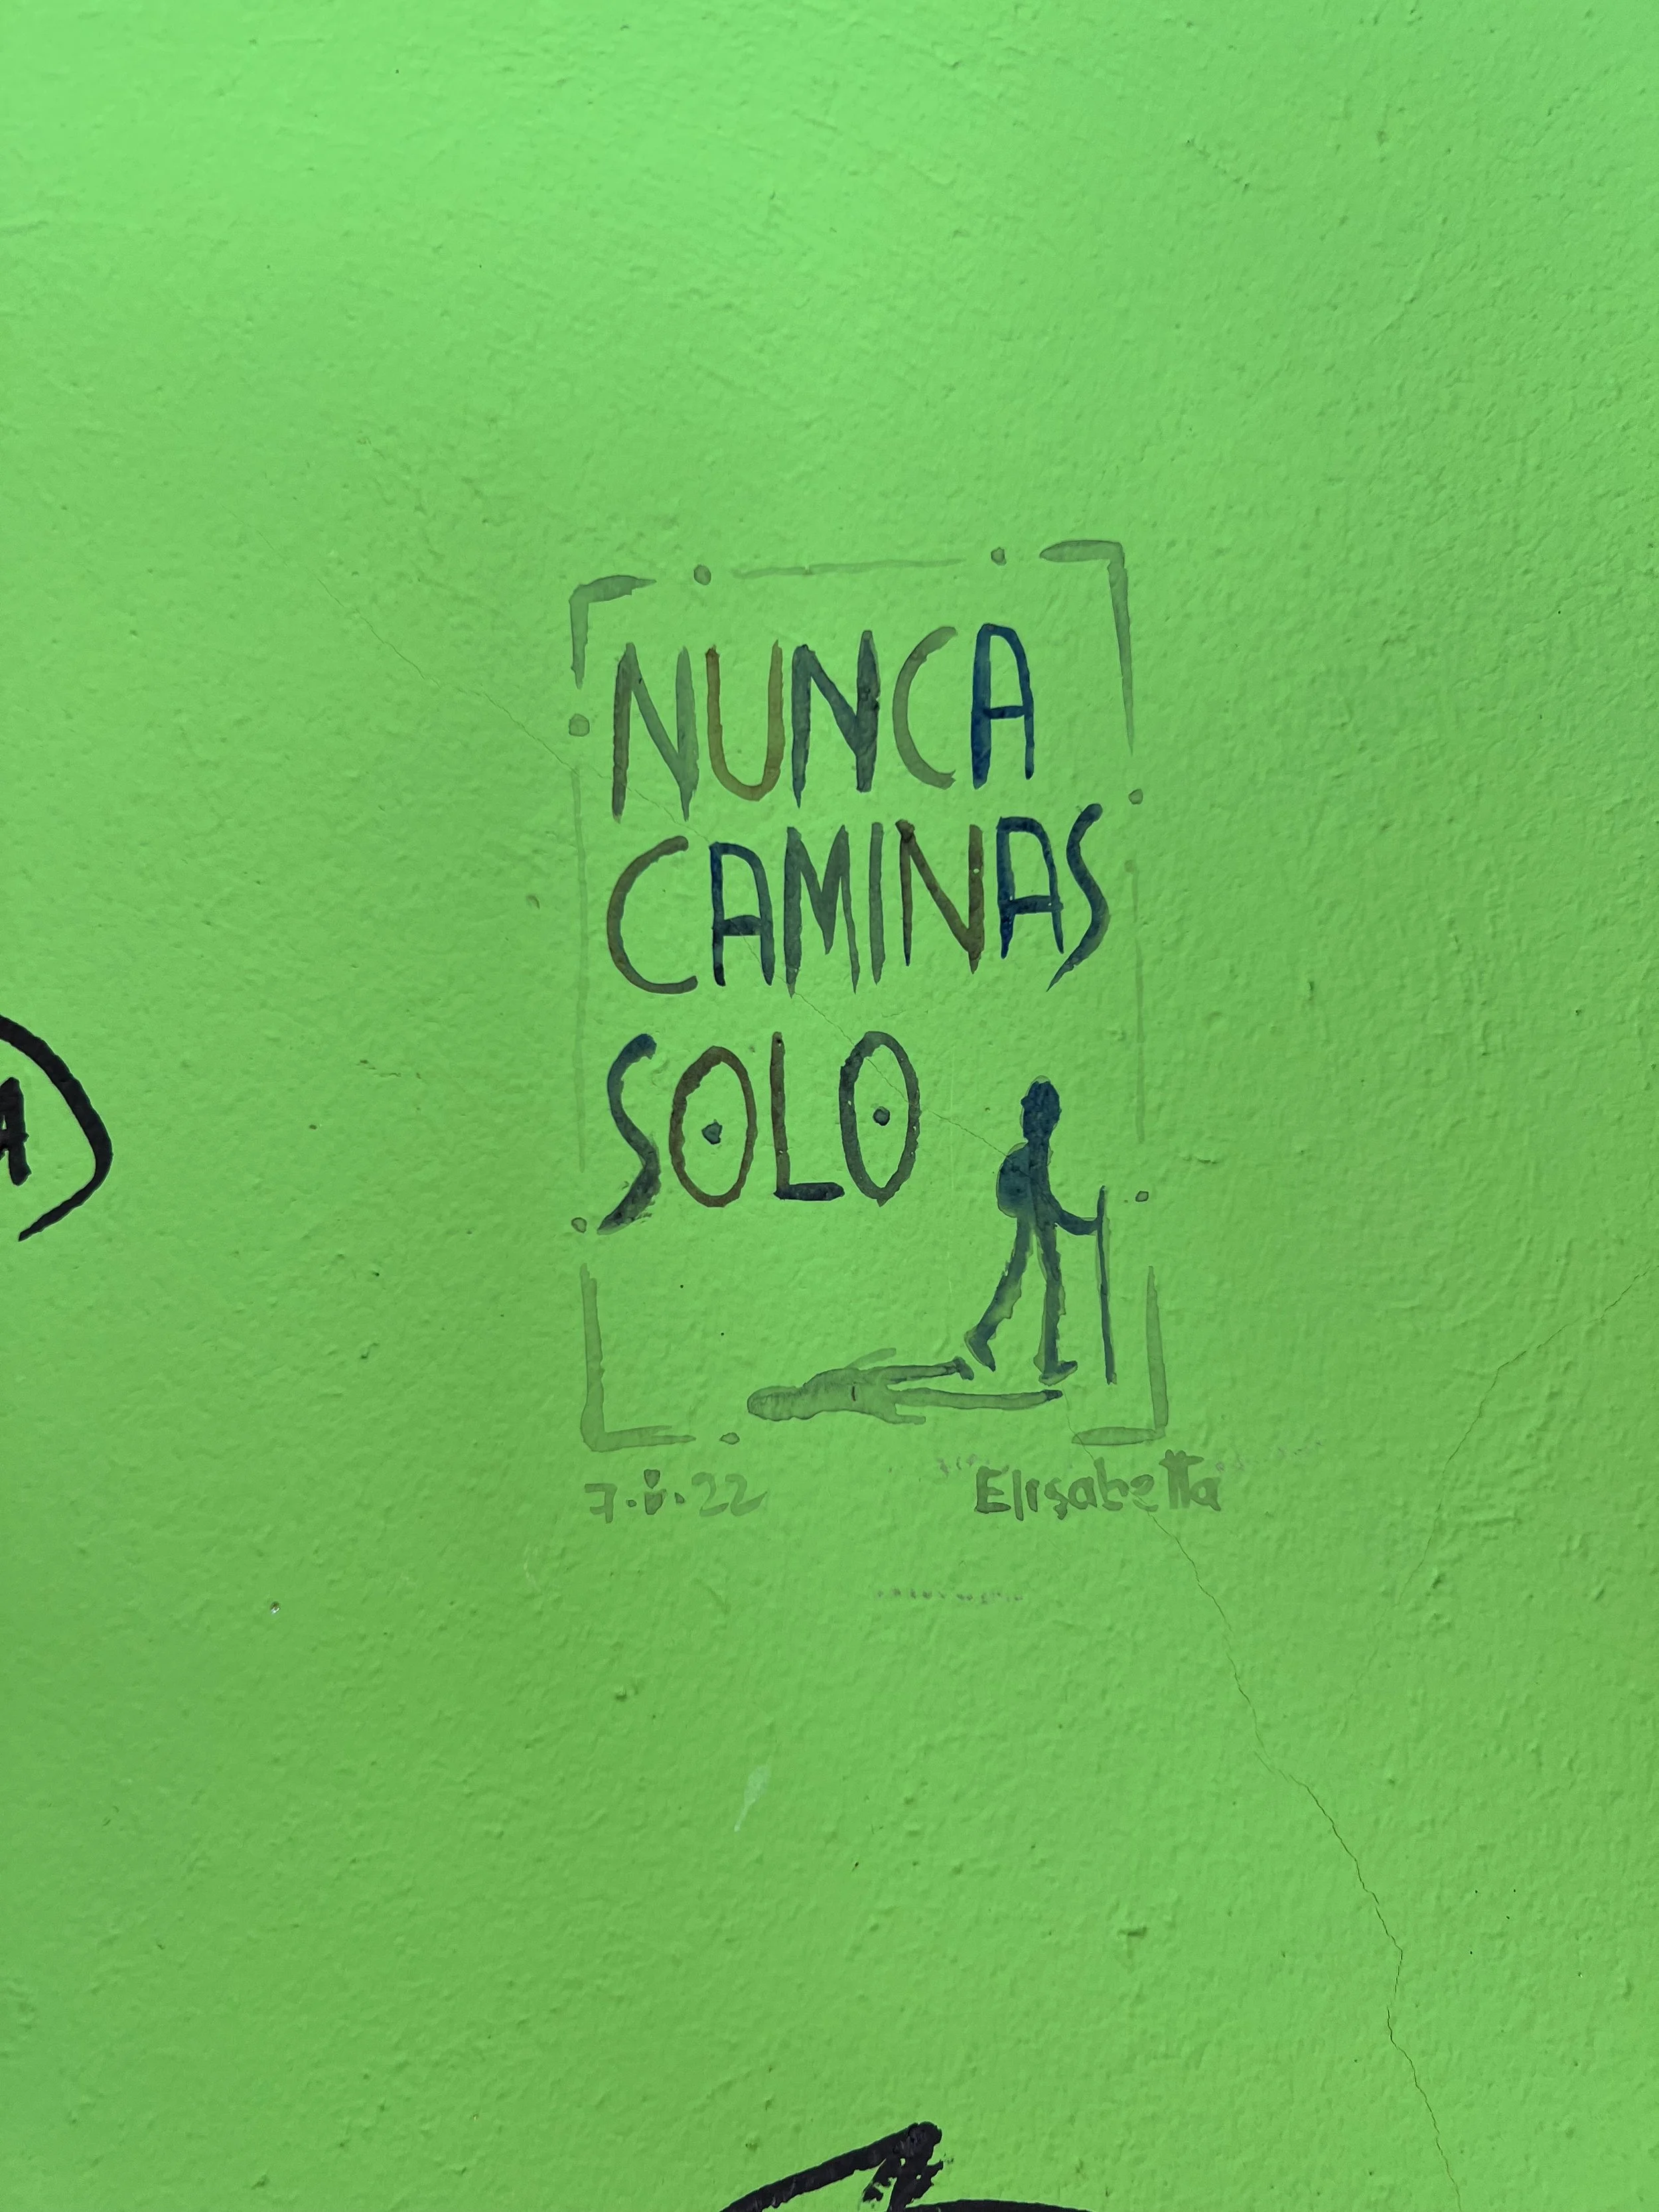 NUNCA
CAMINAS
SOLO
Elisabetta